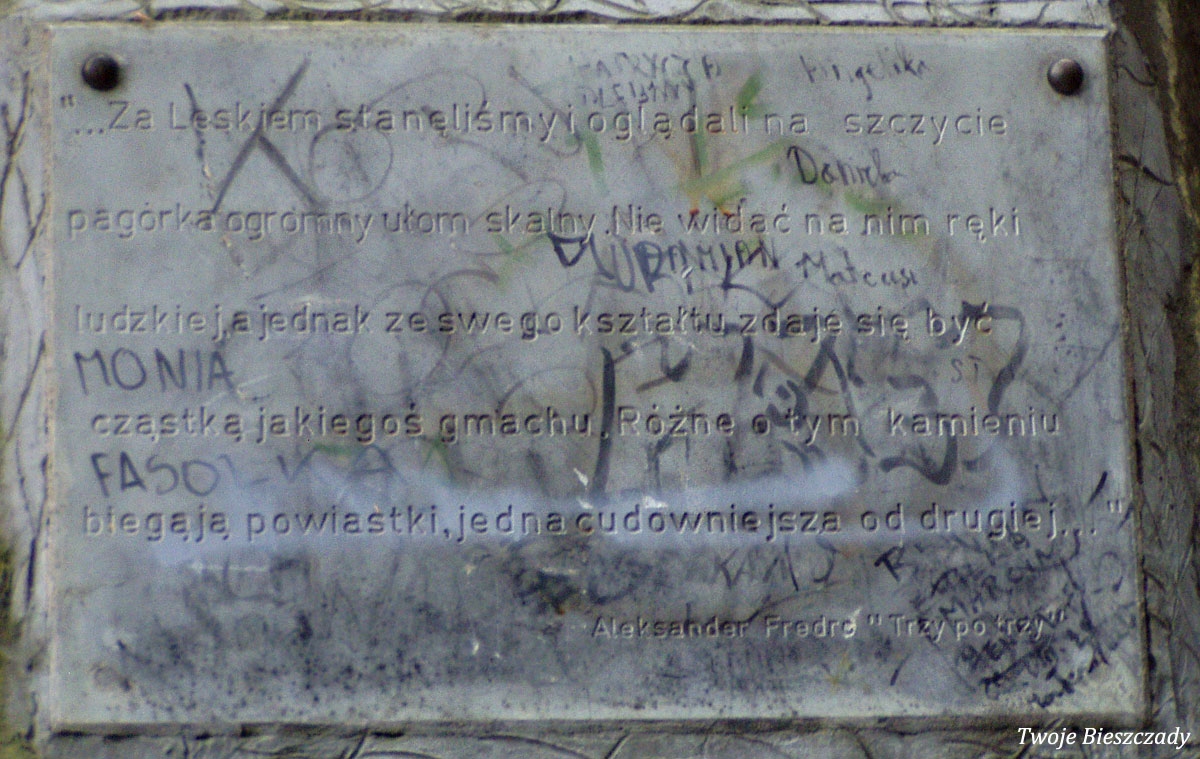 Angelika
"...Za Leskiem stanęliśmy i oglądali na szczycie
pagórka ogromny ułom skalny. Nie widać na nim ręki
DAMIAN
ludzkiej, a jednak ze swego kształtu zdaje się być
MONIA
ST
cząstką jakiegoś gmachu. Różne o tym kamieniu
FASOLKA
biegają powiastki, jedna cudowniejsza od drugiej..."
Aleksander Fredro "Trzy po trzy"
Twoje Bieszczady